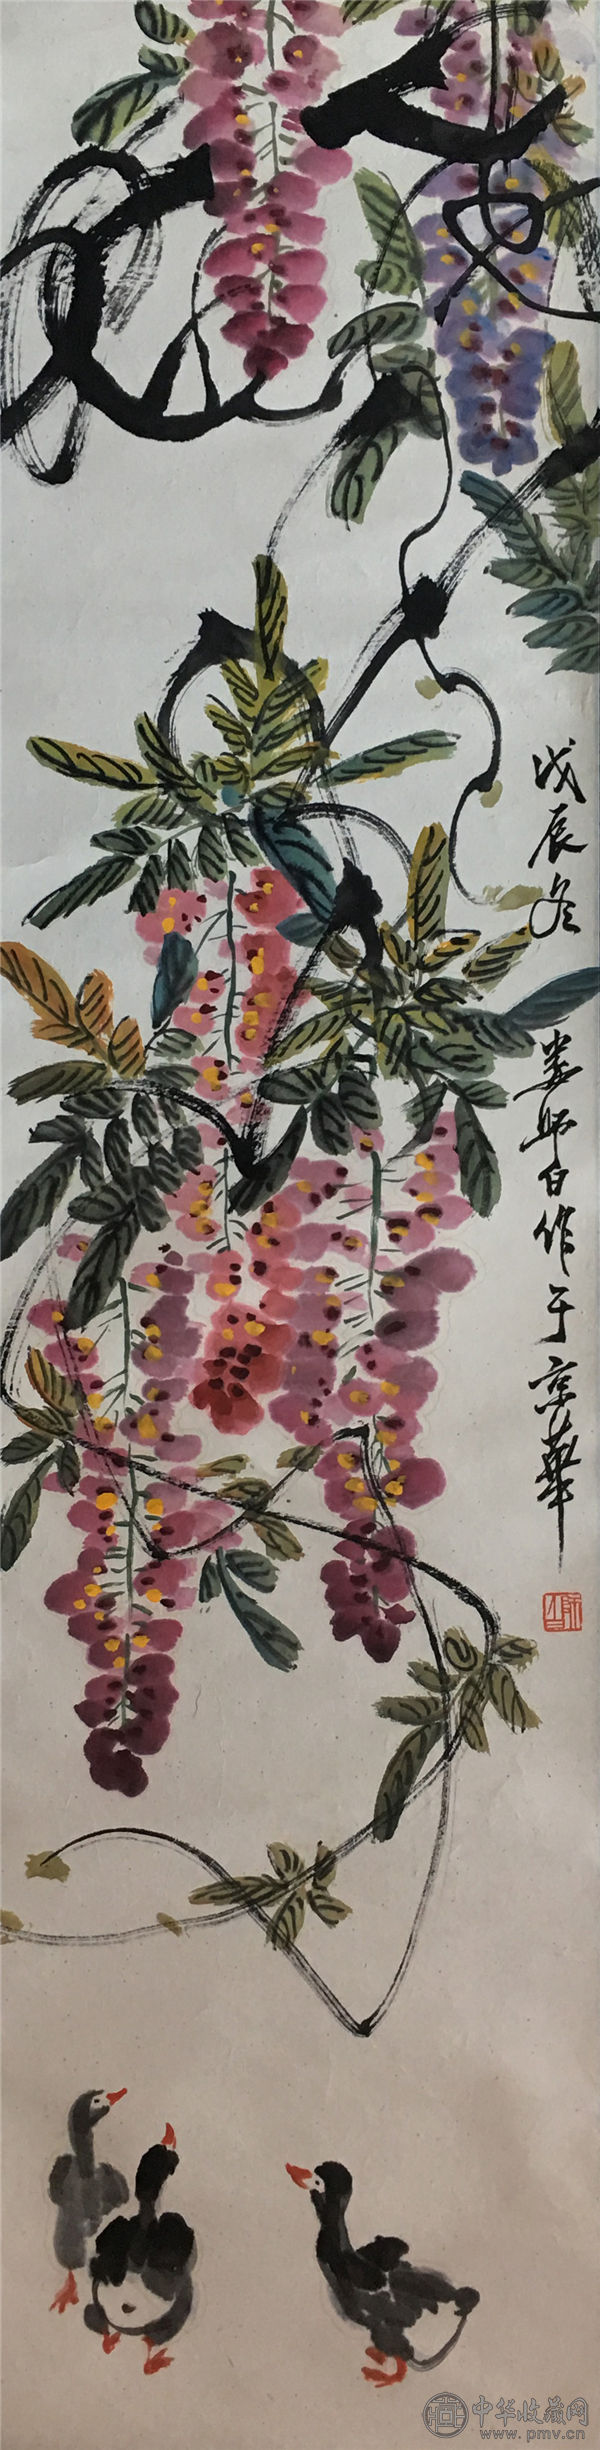 戊辰冬
娄师白作于京華
师白
中华收藏网
www.pmv.cn